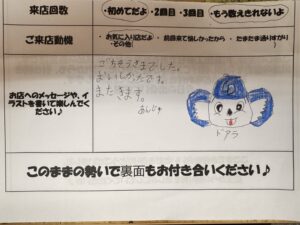 来店回数
・初めてだよ ・2回目 ・3回目 ・もう数えきれないよ
ご来店動機
・お気に入り店だよ ・前回来て愉しかったから ・たまたま通りすがり
・その他( )
お店へのメッセージや、イラストを書いて楽しんでください♪
ごちそうさまでした。
おいしかったです。
またきます。
あんじゅ
ドアラ
このままの勢いで裏面もお付き合いください♪